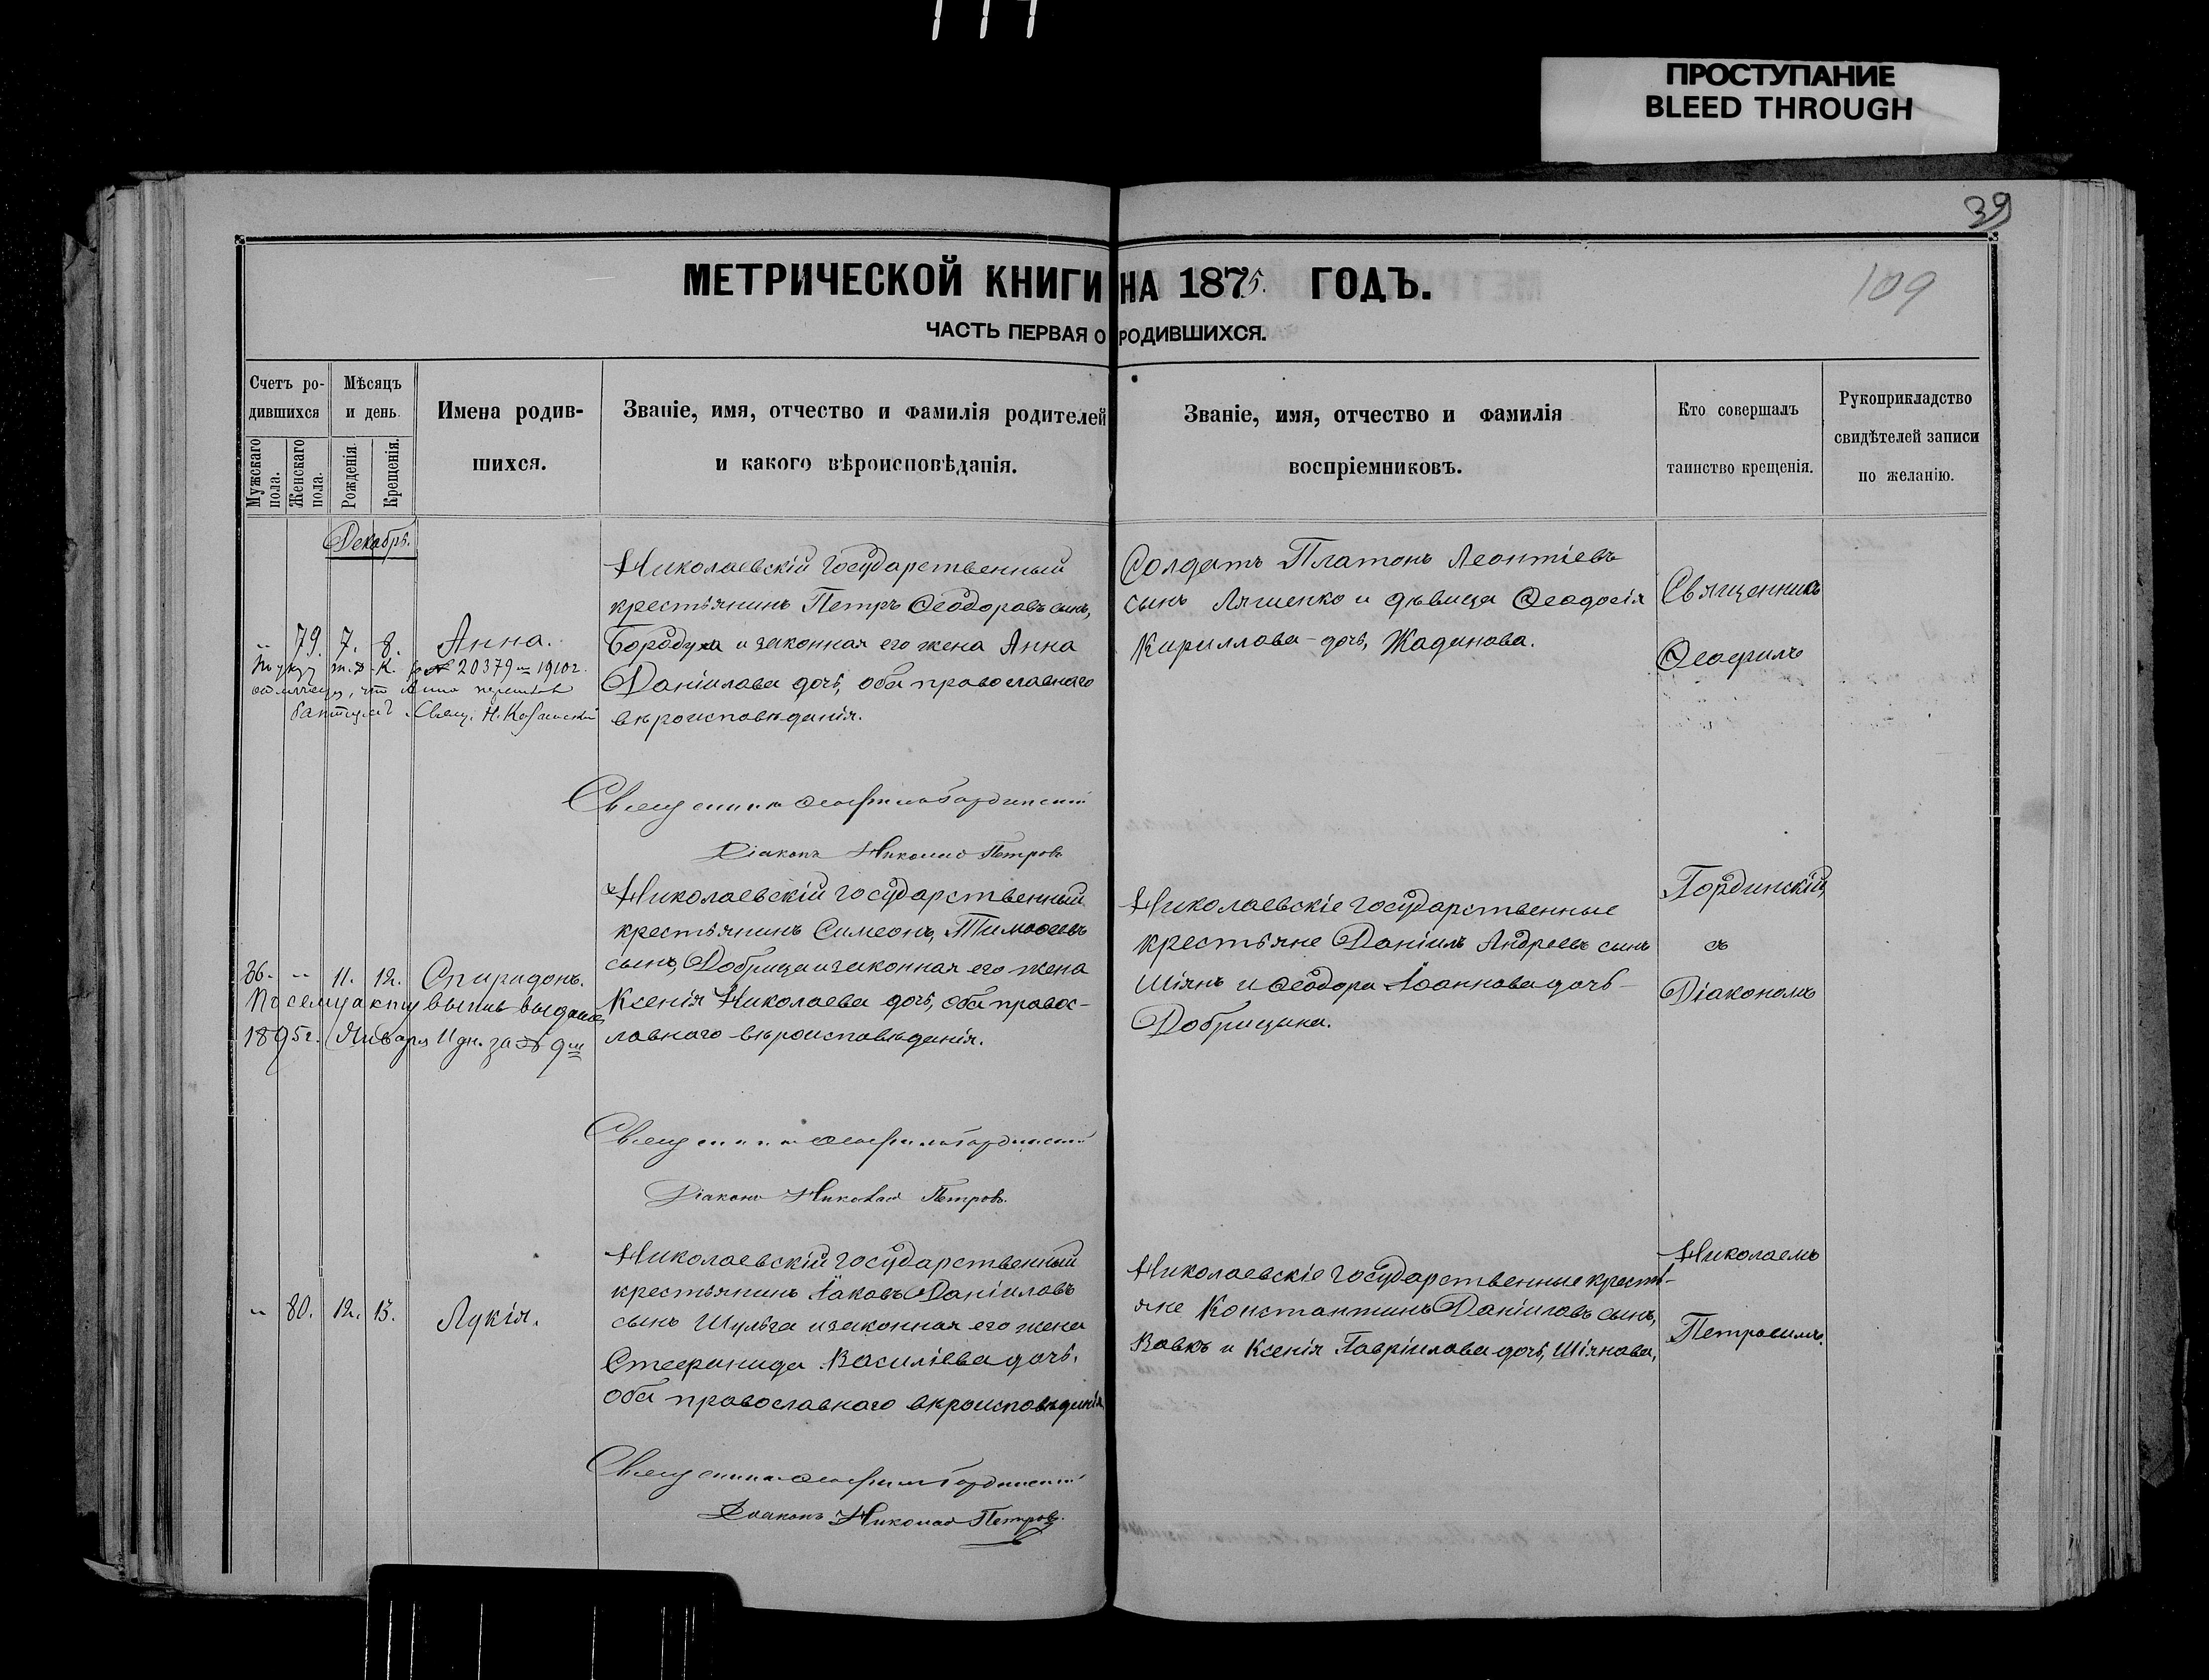 ПРОСТУПАНИЕ
BLEED THROUGH
39
109
МЕТРИЧЕСКОЙ КНИГИ НА 1875. ГОДЪ.
ЧАСТЬ ПЕРВАЯ О РОДИВШИХСЯ.
Счетъ ро-
дившихся
Мужскаго пола.
Женскаго пола.
Мѣсяцъ
и день.
Рожденія
Крещенія.
Имена родив-
шихся.
Званіе, имя, отчество и фамилія родителей
и какого вѣроисповѣданія.
Званіе, имя, отчество и фамилія
воспріемниковъ.
Кто совершалъ
таинство крещенія.
Рукоприкладство
свидѣтелей записи
по желанію.
Декабрь.
„ 79. 7. 8. Анна.
№ 20379 1910 г.
что Анна
Свящ. Н.
Николаевскій государственный
крестьянинъ Петръ Ѳеодоровъ сынъ,
Бородуха и законная его жена Анна
Даніилова дочь, оба православнаго
вѣроисповѣданія.
Солдатъ Платонъ Леонтіевъ
сынъ Ляшенко и дѣвица Ѳеодосія
Кириллова дочь, Жаданова.
Священникъ
Ѳеофилъ
Священникъ Ѳеофилъ Гординскій
Діаконъ Николай Петровъ
86. „ 11. 12. Спиридонъ.
По сему акту выпись выдана
1895 г. Января 11 дн. за № 9
Николаевскій государственный
крестьянинъ Симеонъ, Тимоѳеевъ
сынъ, Добрица и законная его жена
Ксенія Николаева дочь, оба правос-
лавнаго вѣроисповѣданія.
Николаевскіе государственные
крестьяне Даніилъ Андреевъ сынъ
Шіянъ и Ѳеодора Іоаннова дочь
Добрицына.
Гординскій,
съ
Діакономъ
Священникъ Ѳеофилъ Гординскій
Діаконъ Николай Петровъ.
„ 80. 12. 13. Лукія.
Николаевскій государственный
крестьянинъ Іаковъ Даніиловъ
сынъ Шульга и законная его жена
Стефанида Василіева дочь,
оба православнаго вѣроисповѣданія
Николаевскіе государственные кресть-
яне Константинъ Даніиловъ сынъ,
Вовкъ и Ксенія Гавріилова дочь, Шіянова,
Николаемъ
Петровымъ.
Священникъ Ѳеофилъ Гординскій
Діаконъ Николай Петровъ.